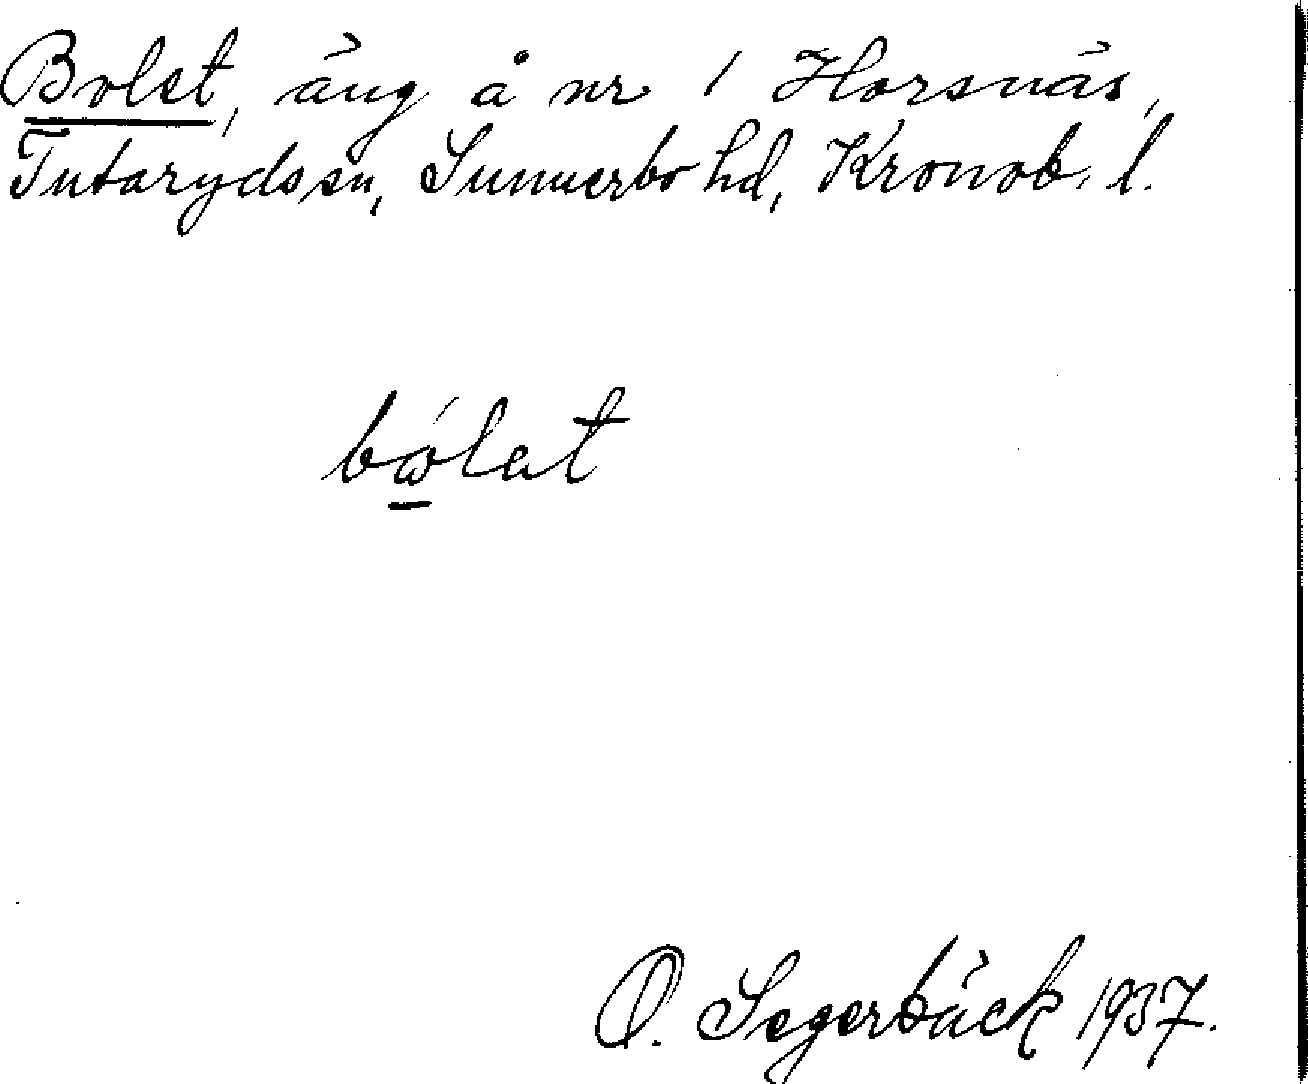 Bolet, äng å nr 1 Horsnäs,
Tutaryds sn, Sunnerbo hd, Kronob. l.
bώ̲lat
O. Segerbäck 1937.